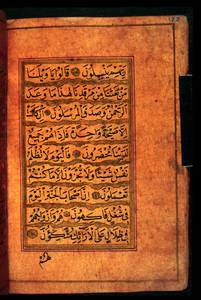 ربهم ينسلون قالوا يويلنا
من بعثنا من مرقدنا هذا ما وعد
الرحمن وصدق المرسلون ان كانت
الا صيحة واحدة فاذا هم جميع
لدينا محضرون فاليوم لا تظلم
نفس شيئا ولا تجزون الا ما كنتم
تعملون ان اصحاب الجنة اليوم
في شغل فاكهون هم وازواجهم
في ظلال على الارائك متكؤن
لهم